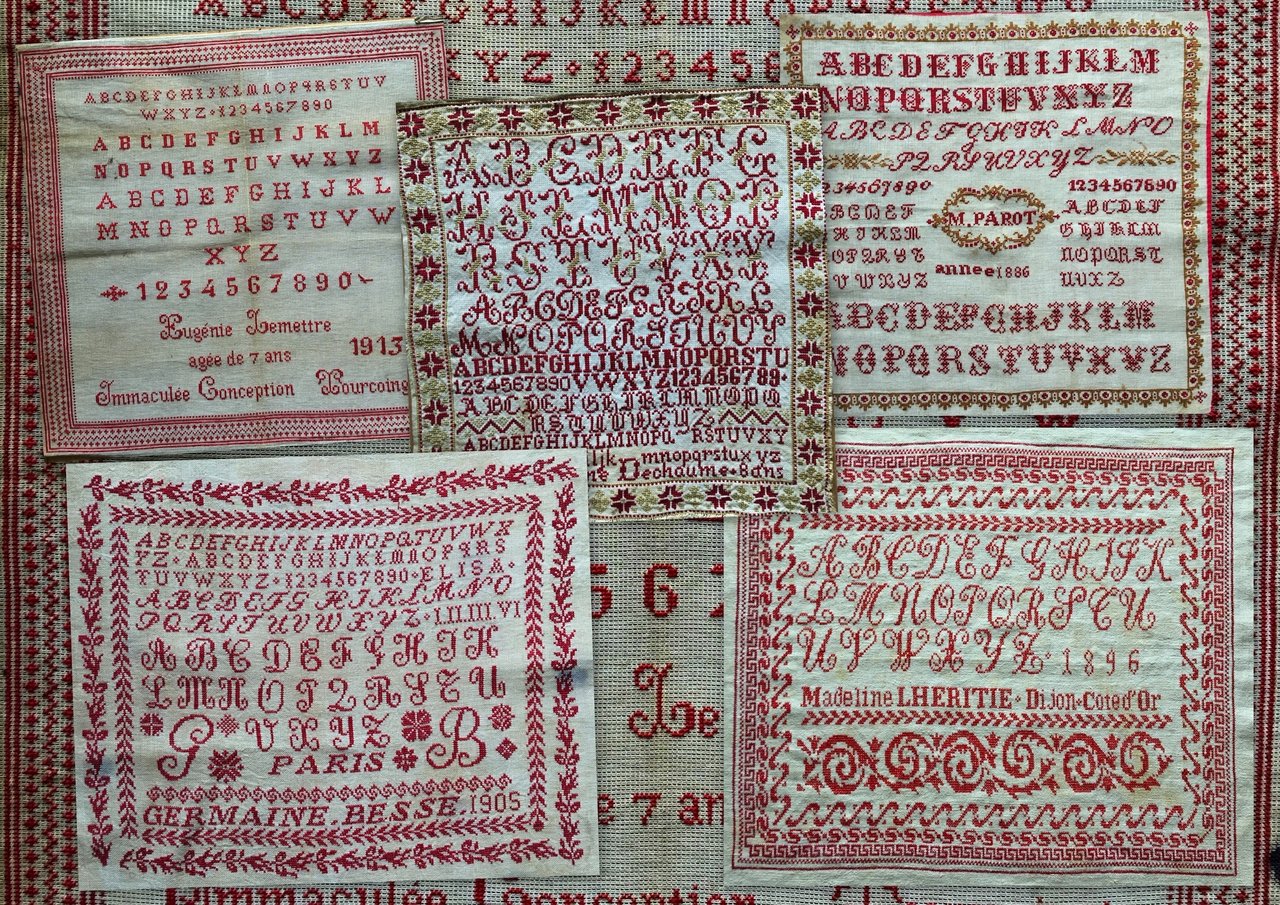 ABCDEFGHIJKLMNOPQRSTUV
WXYZ·1234567890
ABCDEFGHIJKLM
NOPQRSTUVWXYZ
ABCDEFGHIJKL
MNOPQRSTUVW
XYZ
1234567890
Eugénie Lemettre
agée de 7 ans
1913
Immaculée Conception Tourcoing
XYZ·123456
ABCDEFG
HIJLMNOP
RSTUVXZ
ABCDEFGHIJKL
MNOPQRSTUVY
ABCDEFGHIJKLMNOPQRSTU
1234567890VWXYZ123456789·
ABCDEFGHIJKLMNOPQ
RSTUVWXYZ
ABCDEFGHIJKLMNOPQ RSTUVXY
ijk mnopqrstuxyz
Dechaume·8ans
ABCDEFGHIJKLM
NOPQRSTUVXYZ
ABCDEFGHIJKLMNO
PQRSTUVXYZ
34567890
1234567890
BCDEF
ABCDEF
HIJKLM
GHIJKLM
OPQRST
NOPQRST
UVWXYZ
UVXYZ
M.PAROT
annee1886
ABCDEFGHIJKLM
NOPQRSTUVWXYZ
ABCDEFGHIJKLMNOPQTUVWX
YZ·ABCDEFGHIJKLMNOPQRS
TUVWXYZ·1234567890·ELISA·
ABCDEFGHIKLMNO
PQRSTUVWXYZ·I.II.III.VI
ABCDEFGHIK
LMNOPQRSTU
G VXYZ B
PARIS
GERMAINE.BESSE.1905
ABCDEFGHIJK
LMNOPQRSTU
UVWXYZ·1896
Madeline LHERITIE·Dijon-Coted'Or
6
Le
7 an
Immaculée Conception